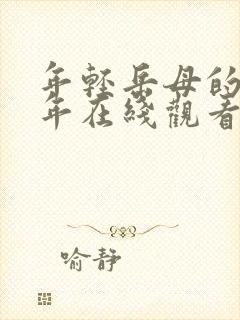 年輕岳母的
年在綫觀看
喻静